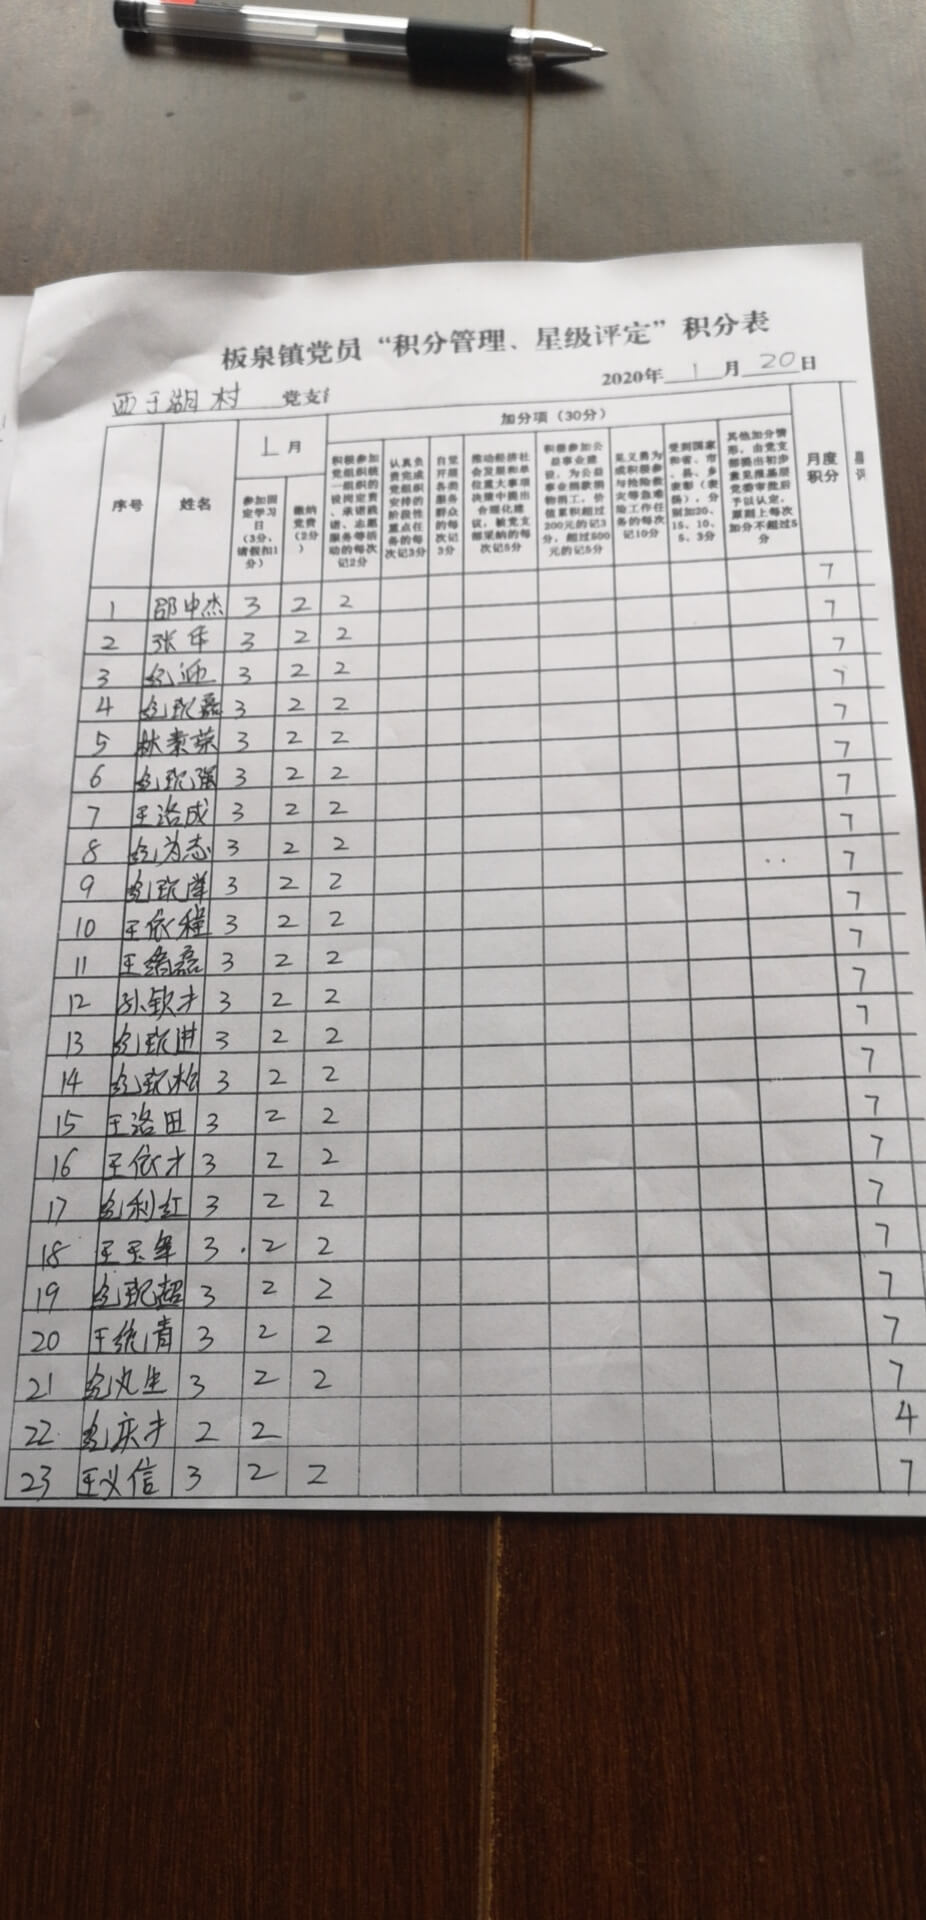 板泉镇党员“积分管理、星级评定”积分表
西于湖村 党支
2020年 1 月 20 日
序号 姓名 1 月 加分项（30分） 月度积分
参加固定学习日（3分，请假扣1分）
缴纳党费（2分）
积极参加党组织统一组织的设岗定责、承诺践诺、志愿服务等活动的每次记2分
认真负责完成党组织安排的阶段性重点任务的每次记3分
自觉开展各类服务群众的每次记3分
推动经济社会发展和单位重大事项决策中提出合理化建议，被党支部采纳的每次记5分
积极参加公益事业建设，为公益事业捐款捐物捐工，价值累积超过200元的记3分，超过500元的记5分
见义勇为或积极参与抢险救灾等急难险工作任务的每次记10分
受到国家和省、市、县、乡表彰（表扬），分别加20、15、10、5、3分
其他加分情形，由党支部提出初步意见报基层党委审批后予以认定，原则上每次加分不超过5分
1 邵中杰 3 2 2 7
2 张年 3 2 2 7
3 3 2 2 7
4 磊 3 2 2 7
5 林素荣 3 2 2 7
6 强 3 2 2 7
7 王洛成 3 2 2 7
8 为志 3 2 2 7
9 3 2 2 7
10 王依程 3 2 2 7
11 王磊 3 2 2 7
12 孙钦才 3 2 2 7
13 进 3 2 2 7
14 松 3 2 2 7
15 王洛田 3 2 2 7
16 王依才 3 2 2 7
17 利红 3 2 2 7
18 王玉军 3 2 2 7
19 超 3 2 2 7
20 王统青 3 2 2 7
21 生 3 2 2 7
22 庆才 2 2 4
23 王义信 3 2 2 7